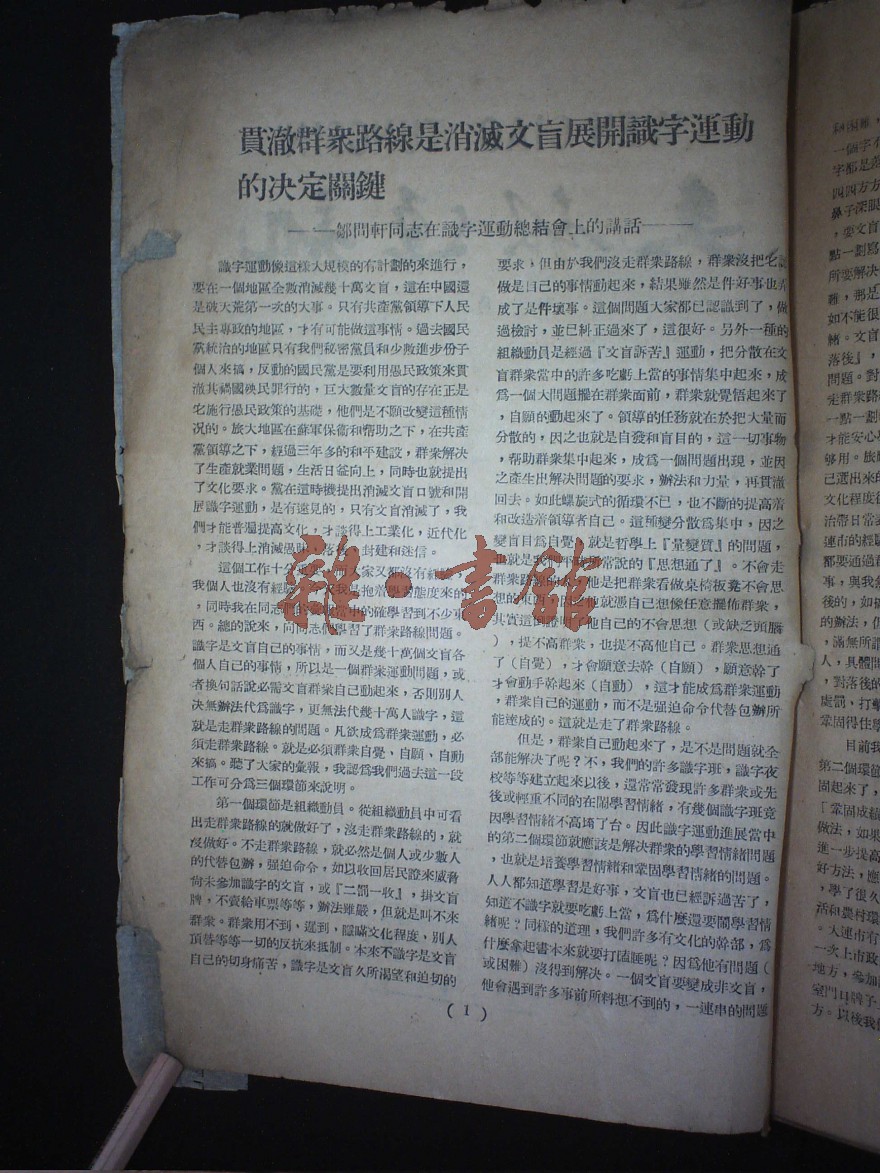 貫澈群衆路線是消滅文盲展開識字運動
的决定關鍵
——鄒問軒同志在識字運動總結會上的講話——
識字運動像這樣大規模的有計劃的來進行,
要在一個地區全數消滅幾十萬文盲,這在中國還
是破天荒第一次的大事。只有共產黨領導下人民
民主專政的地區,才有可能做這事情。過去國民
黨統治的地區只有我們秘密黨員和少數進步份子
個人來搞,反動的國民黨是要利用愚民政策來貫
澈其禍國殃民罪行的,巨大數量文盲的存在正是
它施行愚民政策的基礎,他們是不願改變這種情
况的。旅大地區在蘇軍保衛和幫助之下,在共產
黨領導之下,經過三年多的和平建設,群衆解决
了生產就業問題,生活日益向上,同時也就提出
了文化要求。黨在這時機提出消滅文盲口號和開
展識字運動,是有遠見的,只有文盲消滅了,我
們才能普遍提高文化,才談得上工業化,近代化
,才談得上消滅愚昧,落後,封建和迷信。
這個工作十分重要,而大家又都沒有經驗,
我個人也沒有經驗,抱着學習態度來的
,同時我在同志們的當中的確學習到不少東
西。總的說來,向同志們學習了群衆路線問題。
識字是文盲自己的事情,而又是幾十萬個文盲各
個人自己的事情,所以是一個群衆運動問題,或
者換句話說必需文盲群衆自己動起來,否則別人
决無辦法代爲識字,更無法代幾十萬人識字,這
就是走群衆路線的問題。凡欲成爲群衆運動,必
須走群衆路線。就是必須群衆自覺、自願、自動
來搞。聽了大家的彙報,我認爲我們過去這一段
工作可分爲三個環節來說明。
第一個環節是組織動員。從組織動員中可看
出走群衆路線的就做好了,沒走群衆路線的,就
沒做好。不走群衆路線,就必然是個人或少數人
的代替包辦,强迫命令,如以收回居民證來威脅
尙未參加識字的文盲,或『二罰一收』,掛文盲
牌,不賣給車票等等,辦法雖嚴,但就是叫不來
群衆。群衆用不到,遲到,隱瞞文化程度,別人
頂替等等一切的反抗來抵制。本來不識字是文盲
自己的切身痛苦,識字是文盲久所渴望和迫切的
要求,但由於我們沒走群衆路線,群衆沒把它
做是自己的事情動起來,結果雖然是件好事也弄
成了是件壞事。這個問題大家都已認識到了,做
過檢討,並已糾正過來了,這很好。另外一種的
組織動員是經過『文盲訴苦』運動,把分散在文
盲群衆當中的許多吃虧上當的事情集中起來,成
爲一個大問題擺在群衆面前,群衆就覺悟起來了
,自願的動起來了。領導的任務就在於把大量而
分散的,因之也就是自發和盲目的,這一切事物
,幫助群衆集中起來,成爲一個問題出現,並因
之產生出解决問題的要求,辦法和力量,再貫澈
回去。如此螺旋式的循環不已,也不斷的提高着
和改造着領導者自己。這種變分散爲集中,因之
變盲目爲自覺,就是哲學上『量變質』的問題,
也就是我們通常說的『思想通了』。不會走
群衆路線的人,他是把群衆看做桌椅板凳不會思
想的東西,因之他就憑自己想像任意擺佈群衆,
其實這倒證明了他自己的不會思想(或缺乏頭腦
),提不高群衆,也提不高他自己。群衆思想通
了(自覺),才會願意去幹(自願),願意幹了
才會動手幹起來(自動),這才能成爲群衆運動
,群衆自己的運動,而不是强迫命令代替包辦所
能達成的。這就是走了群衆路線。
但是,群衆自己動起來了,是不是問題就全
部能解决了呢?不,我們的許多識字班,識字夜
校等等建立起來以後,還常常發現許多群衆或先
後或輕重不同的在鬧學習情緒,有幾個識字班竟
因學習情緒不高垮了台。因此識字運動進展當中
的第二個環節就應該是解决群衆的學習情緒問題
,也就是培養學習情緒和鞏固學習情緒的問題。
人人都知道學習是好事,文盲也已經訴過苦了,
知道不識字就要吃虧上當,爲什麼還要鬧學習情
緒呢?同樣的道理,我們許多有文化的幹部,爲
什麼拿起書本來就要打瞌睡呢?因爲他有問題(
或困難)沒得到解决。一個文盲要變成非文盲,
他會遇到許多事前所料想不到的,一連串的問題
(1)
雜·書館